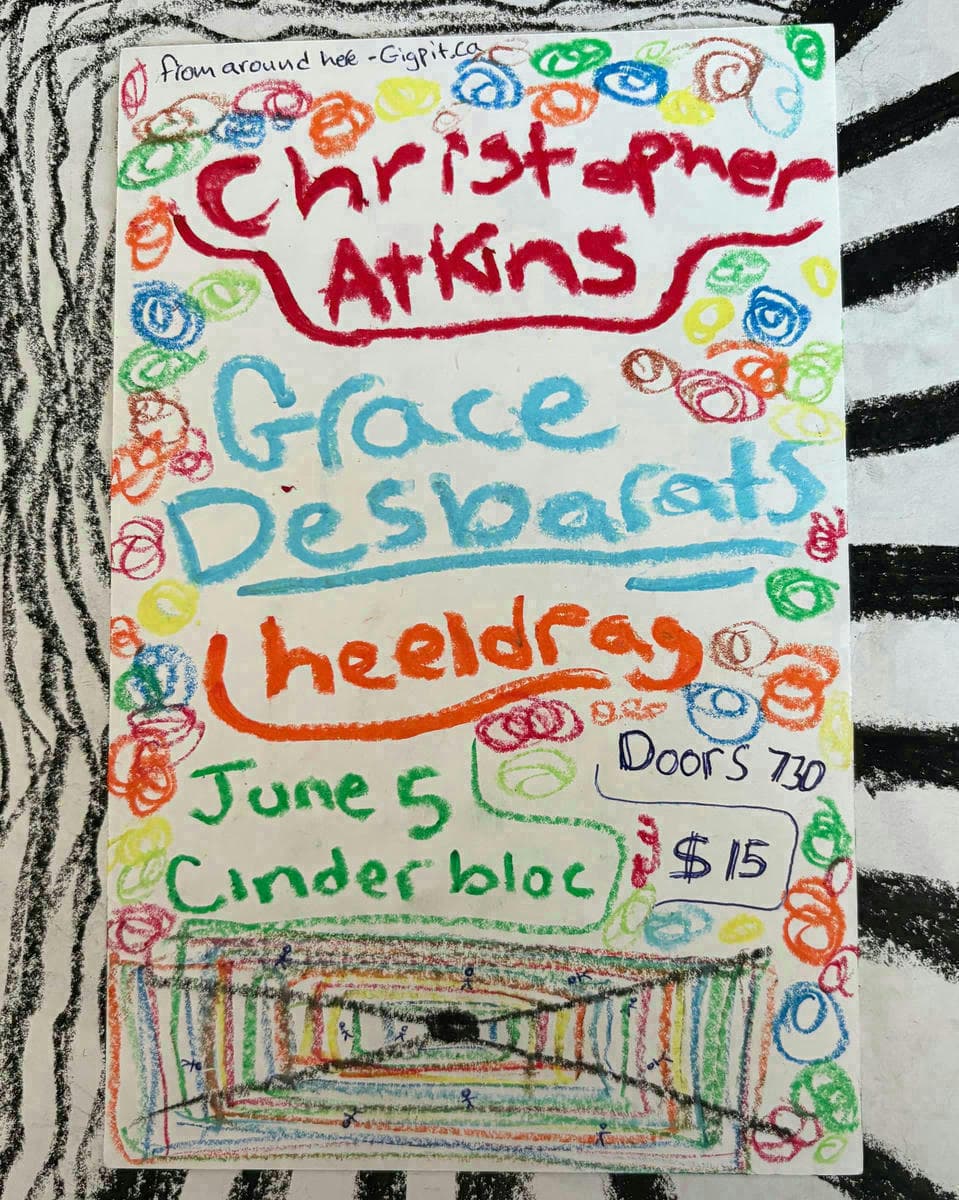 from around here - Gigpit.ca
Christopher
Atkins
Grace
Desbarats
heeldrag
Doors 730
June 5
$15
Cinderbloc